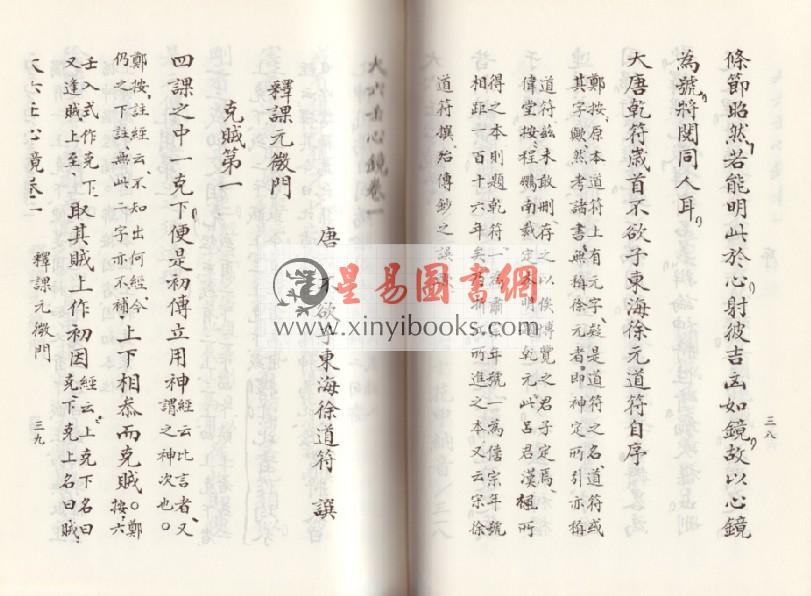 條節昭然若能明此於心射彼吉凶如鏡故以心鏡
為號將閱同人耳
大唐乾符歲首不欲子東海徐元道符自序
鄭按原本道符上有元字疑是道符之名道符或
其字歟然考諸書無稱徐元者即神定所引亦稱
道符茲未敢刪存之以俟博覽之君子定焉
偉堂按程鵬南載定本明明乾元此呂君漢楓所
得之本則題乾符一為肅宗年號一為僖宗年號
相距一百十六年矣
所進之本又云宋徐
道符撰殆傳鈔之誤
序
三八
大六壬心鏡卷一
唐 不欲子東海徐道符 譔
釋課元微門
克賊第一
四課之中一克下便是初傳立用神經云比言者又
謂之神次也○
鄭按註經云不知出何經今
仍之下註無此二字亦不補上下相叅而克賊○鄭
按六
壬入式作克下
又逢賊上至取其賊上作初因經云上克下名曰
克下克上名曰賊
大六壬心鏡卷一
釋課元微門
三九
星易圖書網
www.xinyibooks.com